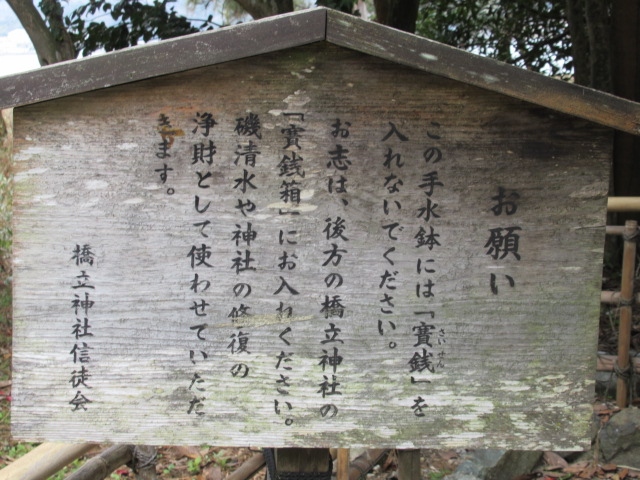 お願い
この手水鉢には「賽銭」を
さいせん
入れないでください。
お志は、後方の橋立神社の
「賽銭箱」にお入れください。
磯清水や神社の修復の
浄財として使わせていただ
きます。
橋立神社信徒会